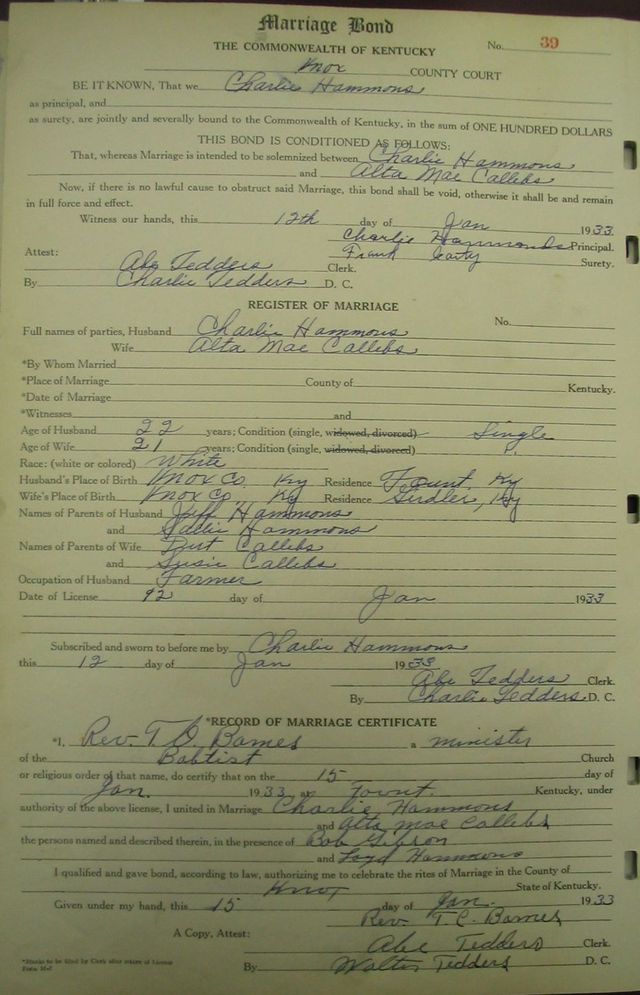 Marriage Bond
THE COMMONWEALTH OF KENTUCKY No. 39
Knox COUNTY COURT
BE IT KNOWN, That we Charlie Hammons
as principal, and
as surety, are jointly and severally bound to the Commonwealth of Kentucky, in the sum of ONE HUNDRED DOLLARS
THIS BOND IS CONDITIONED AS FOLLOWS:
That, whereas Marriage is intended to be solemnized between Charlie Hammons
and Alta Mae Callebs
Now, if there is no lawful cause to obstruct said Marriage, this bond shall be void, otherwise it shall be and remain
in full force and effect.
Witness our hands, this 12th day of Jan 1933.
Charlie Hammonds Principal.
Attest: Frank Surety.
Abe Tedders Clerk.
By Charlie Tedders D. C.
REGISTER OF MARRIAGE
No.
Full names of parties, Husband Charlie Hammons
Wife Alta Mae Callebs
*By Whom Married
*Place of Marriage County of Kentucky.
*Date of Marriage
*Witnesses and
Age of Husband 22 years; Condition (single, widowed, divorced) Single
Age of Wife 21 years; Condition (single, widowed, divorced)
Race: (white or colored) White
Husband's Place of Birth Knox Co. Ky Residence Fount, Ky
Wife's Place of Birth Knox Co Ky Residence Girdler, Ky
Names of Parents of Husband Jeff Hammons
and Sallie Hammons
Names of Parents of Wife Callebs
and Susie Callebs
Occupation of Husband Farmer
Date of License 12 day of Jan 1933
Subscribed and sworn to before me by Charlie Hammons
this 12 day of Jan 1933
Abe Tedders Clerk.
By Charlie Tedders D. C.
*RECORD OF MARRIAGE CERTIFICATE
*I, Rev. T. C. Barnes a minister
of the Babtist Church
or religious order of that name, do certify that on the 15 day of
Jan. 1933 at Fount. Kentucky, under
authority of the above license, I united in Marriage Charlie Hammons
and Alta Mae Callebs
the persons named and described therein, in the presence of Bob Gibson
and Loyd Hammons
I qualified and gave bond, according to law, authorizing me to celebrate the rites of Marriage in the County of
Knox State of Kentucky.
Given under my hand, this 15 day of Jan. 1933
Rev. T. C. Barnes
A Copy, Attest: Abe Tedders Clerk.
By Walter Tedders D. C.
*Blanks to be filled by Clerk after return of License